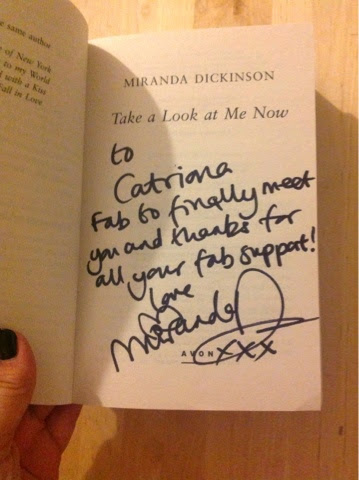 e same author
of New York
to my World
with a Kiss
Fall in Love
MIRANDA DICKINSON
Take a Look at Me Now
to
Catriona
Fab to finally meet
you and thanks for
all your fab support!
Love
Miranda
AVON xxx